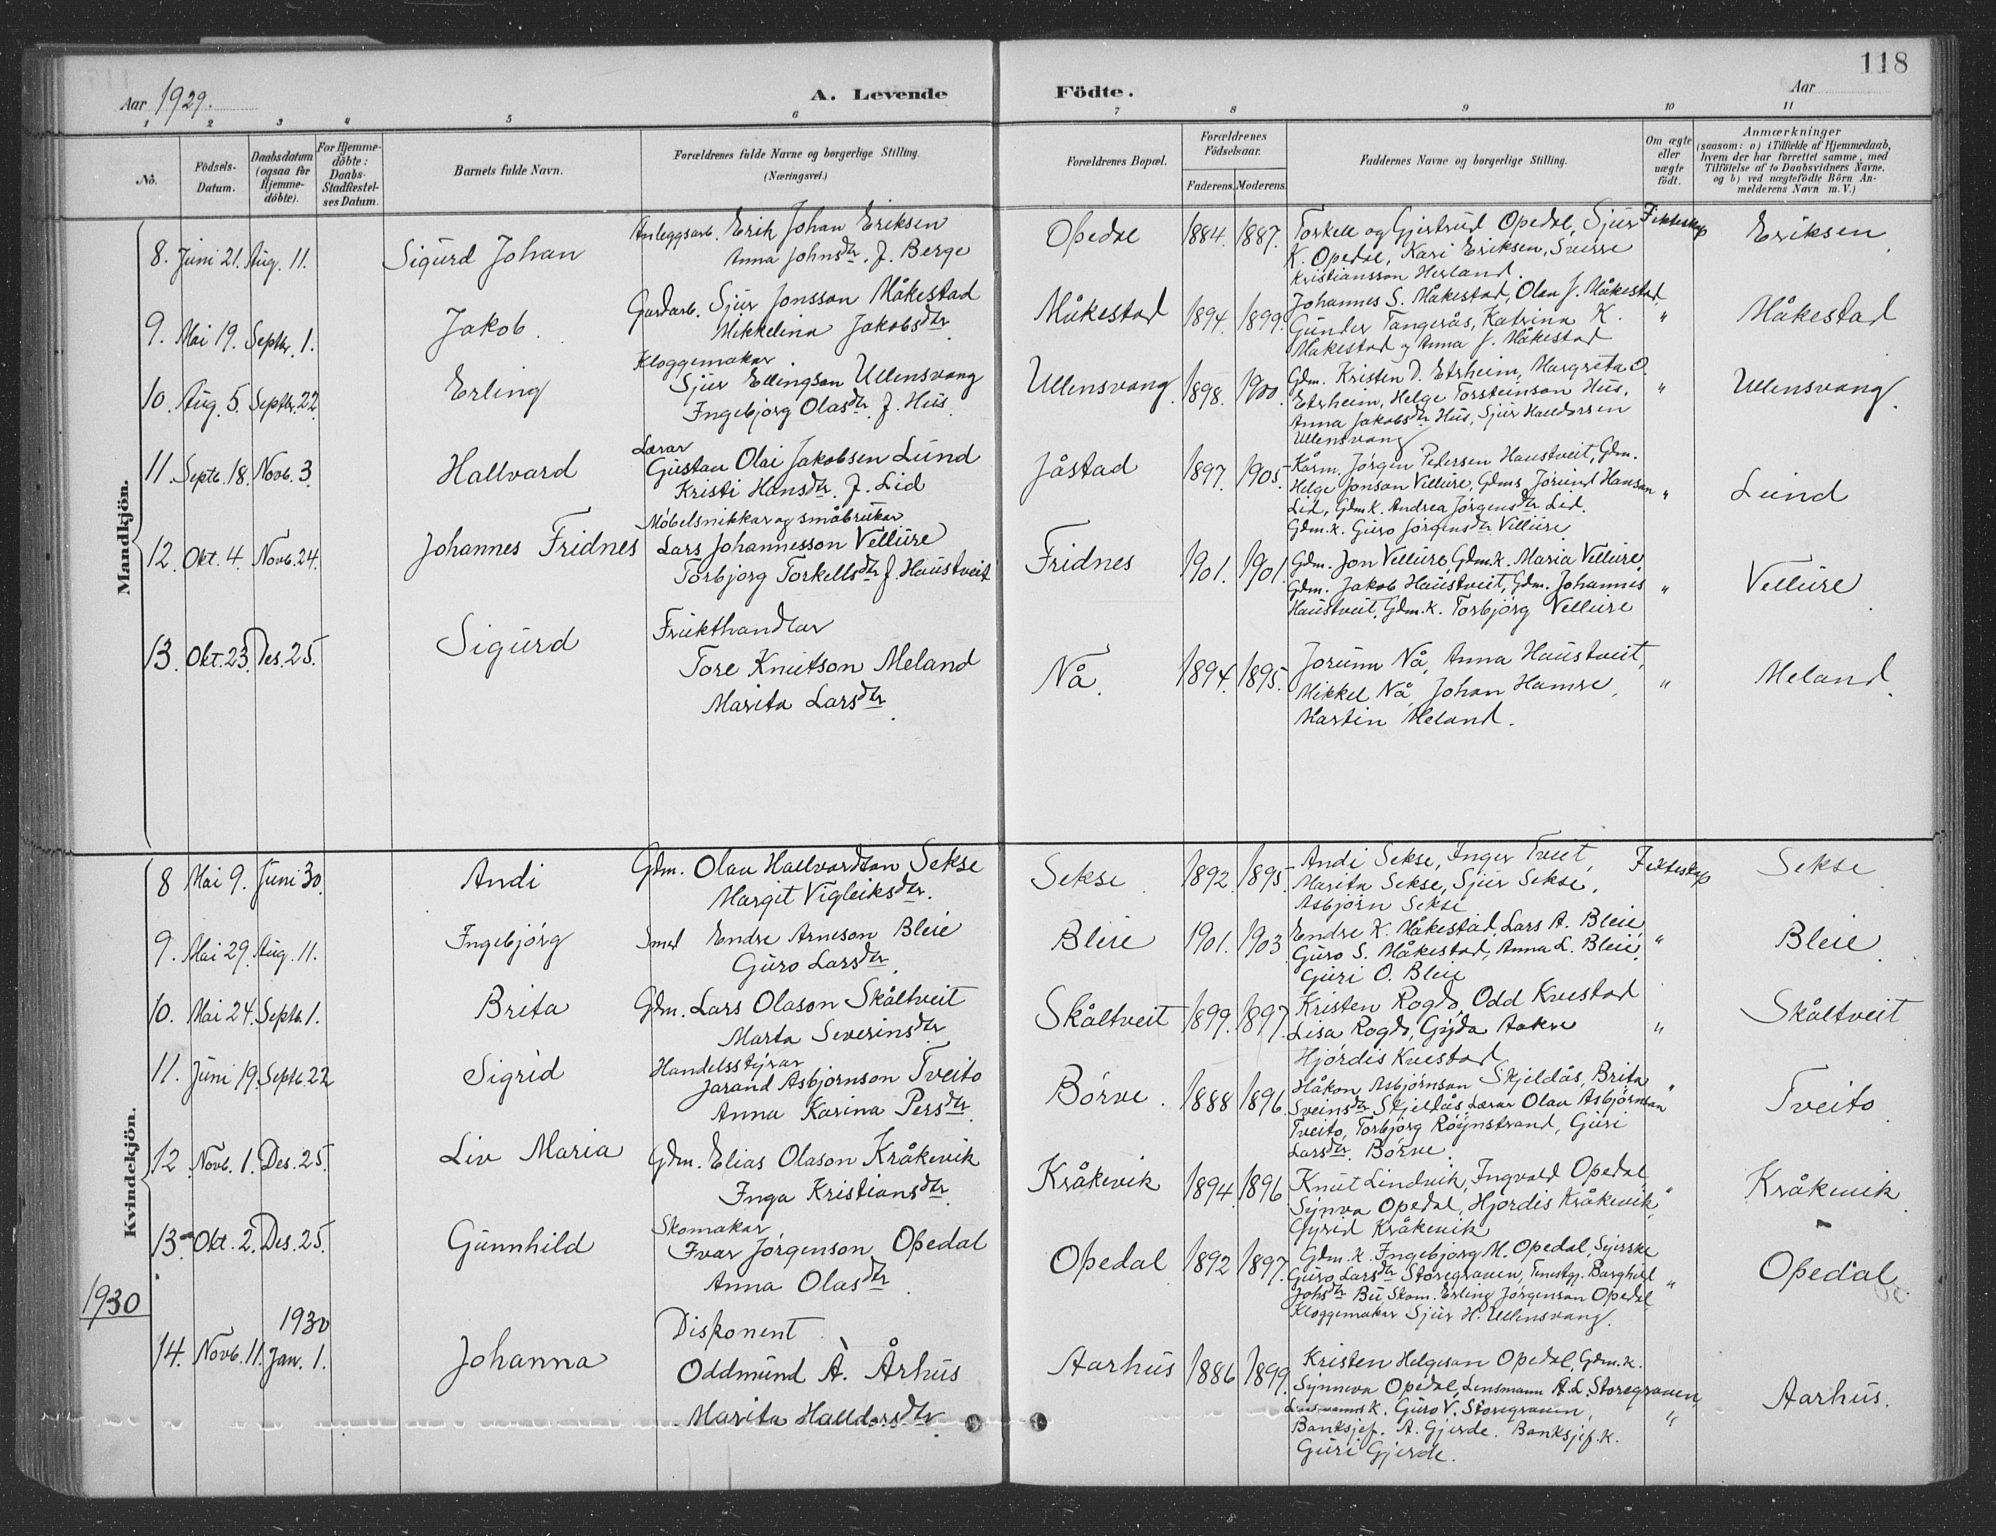 118
Aar 1929.
A. Levende Födte.
Aar
1 2 3 4 5 6 7 8 9 10 11
No.
Födsels-Datum.
Daabsdatum (ogsaa för Hjemme-döbte).
For Hjemme-döbte: Daabs-Stadfæstel-ses Datum.
Barnets fulde Navn.
Forældrenes fulde Navne og borgerlige Stilling. (Næringsvei.)
Forældrenes Bopæl.
Forældrenes Födselsaar.
Faderens. Moderens.
Faddernes Navne og borgerlige Stilling.
Om ægte eller uægte födt.
Anmærkninger
(saasom: a) i Tilfælde af Hjemmedaab, hvem der har forrettet samme, med Tilföielse af to Daabsvidners Navne, og b) ved uægtefödte Börn An-melderens Navn m. V.)
Mandkjön.
8. Juni 21. Aug. 11. Sigurd Johan
Anleggsarb. Erik Johan Eriksen
Anna Johnsdtr. f. Berge
Opedal 1884. 1887.
Torkell og Gjertrud Opedal, Sjur
K. Opedal, Kari Eriksen, Sverre
Kristiansson Herland.
Ekteskap Eriksen.
9. Mai 19. Septbr. 1. Jakob.
Gardarb. Sjur Jonsson Måkestad
Mikkelina Jakobsdtr.
Måkestad 1894. 1899.
Johannes S. Måkestad, Olav J. Måkestad,
Gunder Tangerås, Katrina K.
Måkestad og Anna J. Måkestad
" Måkestad
10. Aug. 5. Septbr. 22. Erling
Kloggemakar
Sjur Ellingson Ullensvang
Ingebjørg Olasdtr. f. Hus.
Ullensvang 1898. 1900.
Gdm. Kristen D. Etrheim, Margreta O.
Etrheim, Helge Torsteinson Hus,
Anna Jakobsdtr Hus, Sjur Halldorsen
Ullensvang
" Ullensvang.
11. Septb. 18. Novb. 3. Hallvard
Lærar
Gustav Olai Jakobsen Lund
Kristi Hansdtr. f. Lid
Jåstad 1897. 1905.
Kårm. Jørgen Pedersen Haustveit, Gdm.
Helge Jonson Vellure, Gdms Jørund Hanson
Lid, Gdm.k. Andrea Jørgensdtr Lid.
Gdm.k. Guro Jørgensdtr Vellure.
" Lund
12. Okt. 4. Novb. 24. Johannes Fridnes
Møbelsnikkar og småbrukar
Lars Johannesson Vellure
Torbjørg Torkellsdtr f. Haustveit
Fridnes 1901. 1901.
Gdm. Jon Vellure, Gdm.k. Maria Vellure,
Gdm. Jakob Haustveit, Gdm. Johannes
Haustveit, Gdm.k. Torbjørg Vellure
" Vellure
13. Okt. 23. Des. 25. Sigurd
Frukthandlar
Tore Knutson Meland
Marita Larsdtr.
Nå. 1894. 1895.
Jorunn Nå, Anna Haustveit,
Mikkel Nå, Johan Hamre,
Martin Meland.
" Meland.
Kvindekjön.
8 Mai 9. Juni 30. Andi
Gdm. Olav Hallvardson Sekse
Margit Vigleiksdtr.
Sekse. 1892. 1895.
Andi Sekse, Inger Tveit,
Marita Sekse, Sjur Sekse,
Asbjørn Sekse
Ekteskap Sekse.
9. Mai 29. Aug. 11. Ingebjørg
Smed Endre Arneson Bleie
Guro Larsdtr.
Bleie 1901. 1903
Endre K. Måkestad, Lars A. Bleie,
Guro S. Måkestad, Anna L. Bleie,
Guri O. Bleie
" Bleie.
10. Mai 24. Septb. 1. Brita
Gdm. Lars Olason Skåltveit
Marta Severinsdtr
Skåltveit 1899. 1897.
Kristen Rogdo, Odd Kvestad
Lisa Rogdo, Gyda Aakre
Hjørdis Kvestad
" Skåltveit
11. Juni 19. Septb. 22 Sigrid
Handelsstyrar
Jarand Asbjørnson Tveito
Anna Karina Persdtr.
Børve. 1888 1896.
Håkon Asbjørnson Skjeldås, Brita
Sveinsdtr Skjeldås, Lærar Olav Asbjørnson
Tveito, Torbjørg Røynstrand, Guri
Larsdtr. Børve.
" Tveito
12 Novb. 1. Des. 25. Liv Maria
Gdm. Elias Olason Kråkevik
Inga Kristiansdtr.
Kråkevik 1894. 1896
Knut Lindvik, Ingvald Opedal,
Synva Opedal, Hjørdis Kråkevik,
Gyrid Kråkevik
" Kråkevik
13 Okt. 2. Des. 25. Gunnhild
Skomakar
Ivar Jørgenson Opedal
Anna Olasdtr.
Opedal 1892 1897.
Gdm.k. Ingebjørg M. Opedal, Syerske
Guro Larsdtr Storegraven, Tenestgj. Borghild
Johsdtr Bu, Skom. Erling Jørgenson Opedal
Kloggemakar Sjur H. Ullensvang.
" Opedal
1930
1930
14. Novb. 11. Jan. 1. Johanna
Disponent
Oddmund A. Århus
Marita Halldorsdtr.
Aarhus 1886 1899.
Kristen Helgeson Opedal, Gdm.k.
Synneva Opedal, Lensmann A. L. Storegraven,
Lensmannsk. Guro V. Storegraven,
Banksjef. A. Gjerde. Banksjef.k.
Guri Gjerde.
" Aarhus.